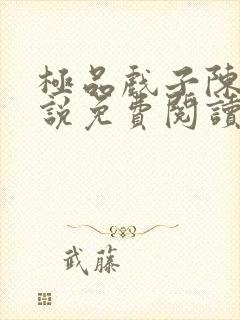 極品戲子陳
說免費閱讀
武藤